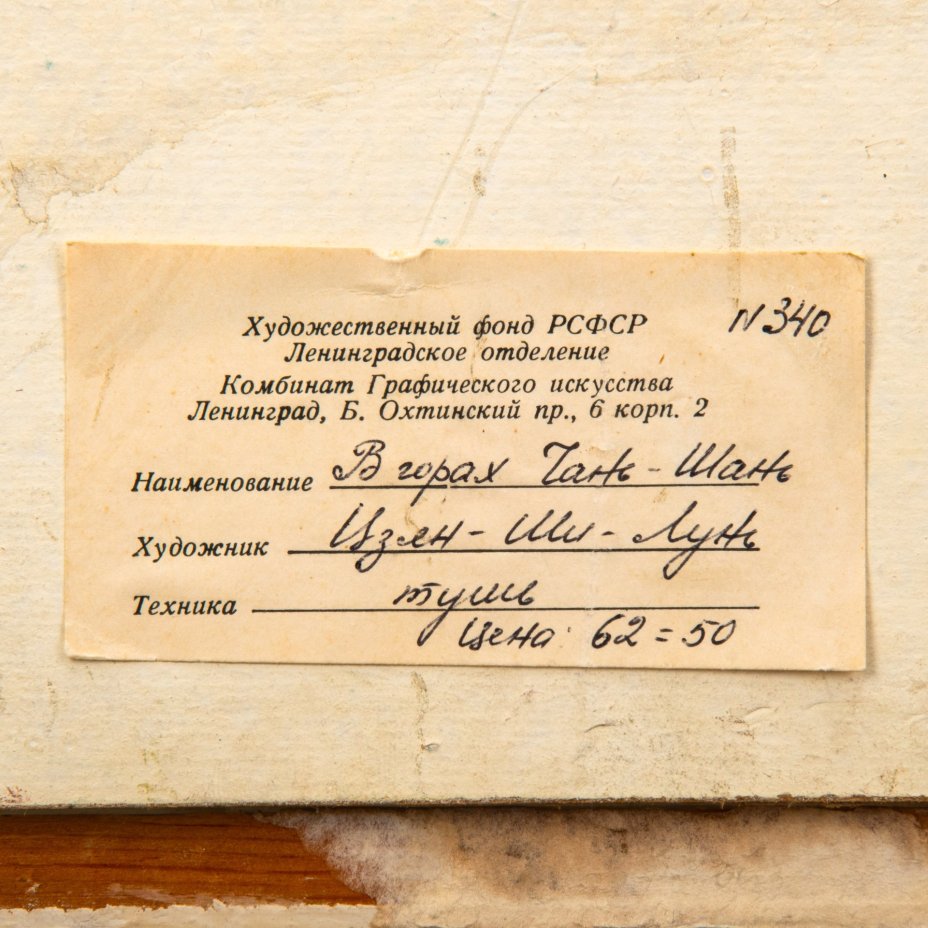 N 340
Художественный фонд РСФСР
Ленинградское отделение
Комбинат Графического искусства
Ленинград, Б. Охтинский пр., 6 корп. 2
Наименование В горах Чань-Шань
Художник Цзян-Ши-Лунь
Техника тушь
Цена: 62=50